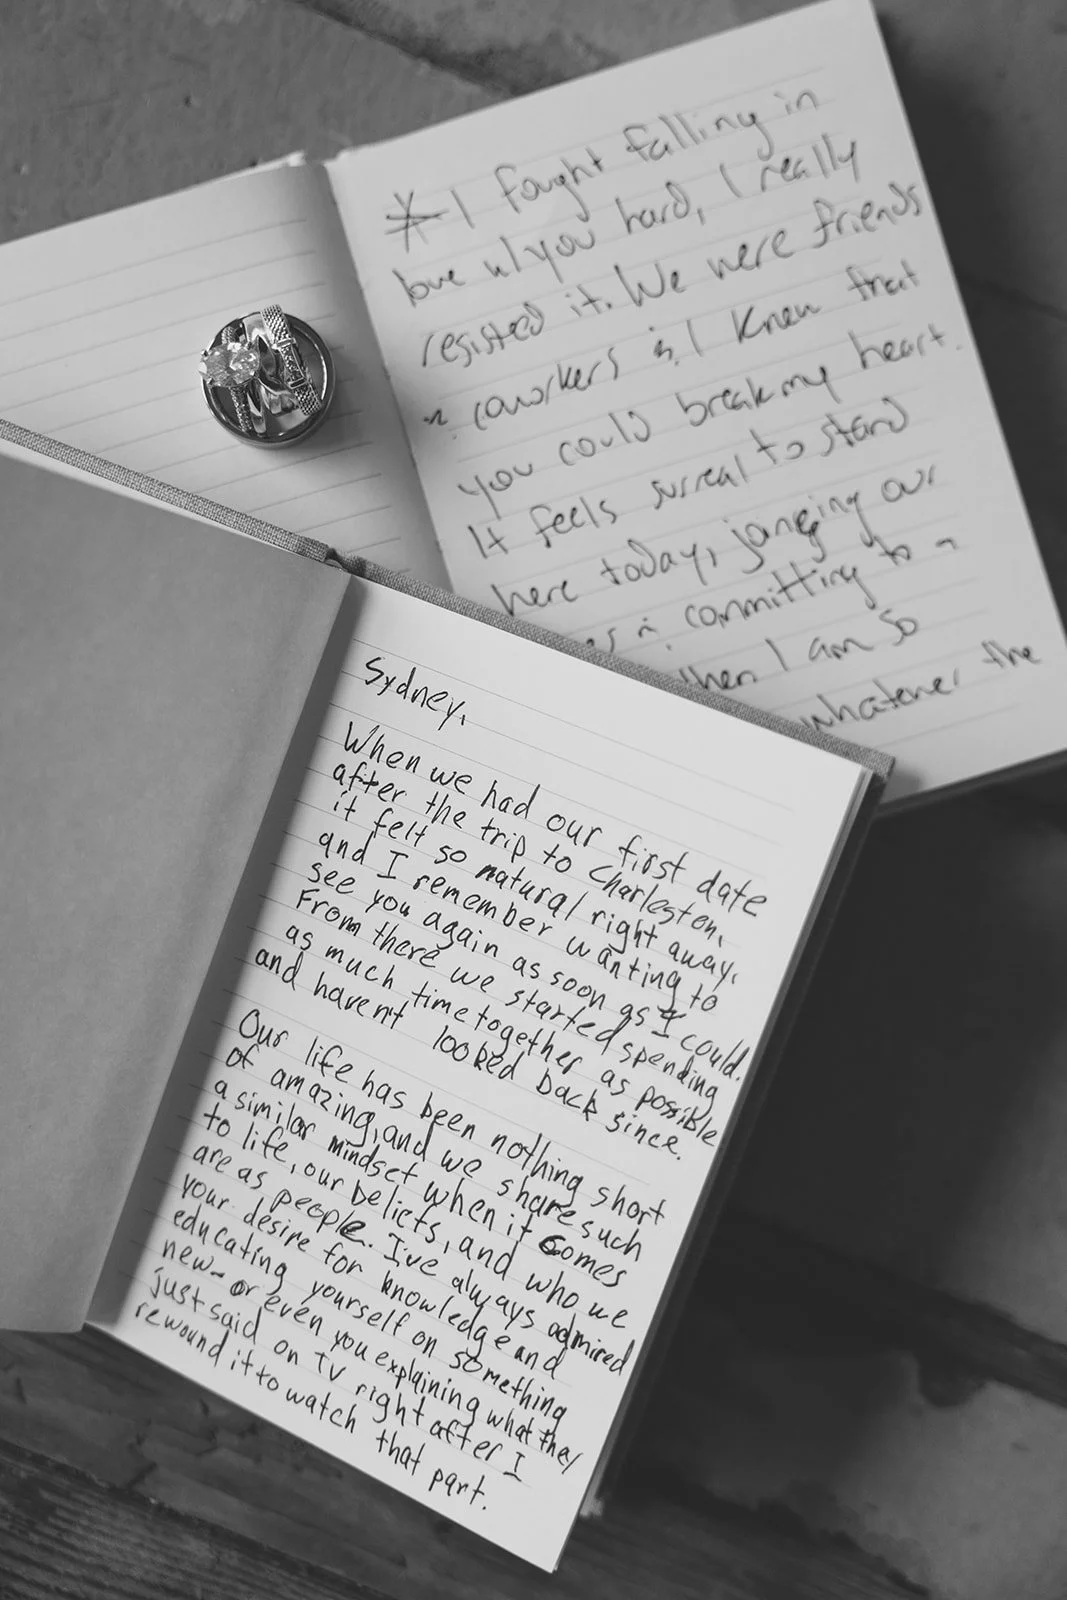 * I fought falling in
love w/ you hard, I really
resisted it. We were friends
coworkers & I knew that
you could break my heart.
It feels surreal to stand
here today,
our
committing to a
when I am so
whatever the
Sydney,
When we had our first date
after the trip to Charleston,
it felt so natural right away,
and I remember wanting to
see you again as soon as I could.
From there we started spending
as much time together as possible
and haven't looked back since.
Our life has been nothing short
of amazing, and we share such
a similar mindset when it comes
to life, our beliefs, and who we
are as people. I've always admired
your desire for knowledge and
educating yourself on something
new- or even you explaining what they
just said on TV right after I
rewound it to watch that part.